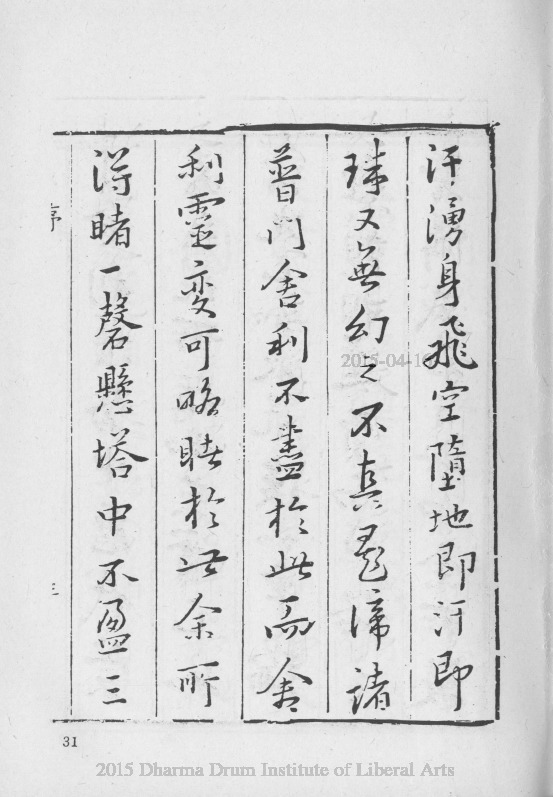 汗湧身飛空墮地即汗即
珠又無幻之不真是諦諸
普門舍利不盡於此而舍
利靈变可略睹於此余所
得睹一磬懸塔中不盈三
序
三
31
2015-04-16
2015 Dharma Drum Institute of Liberal Arts